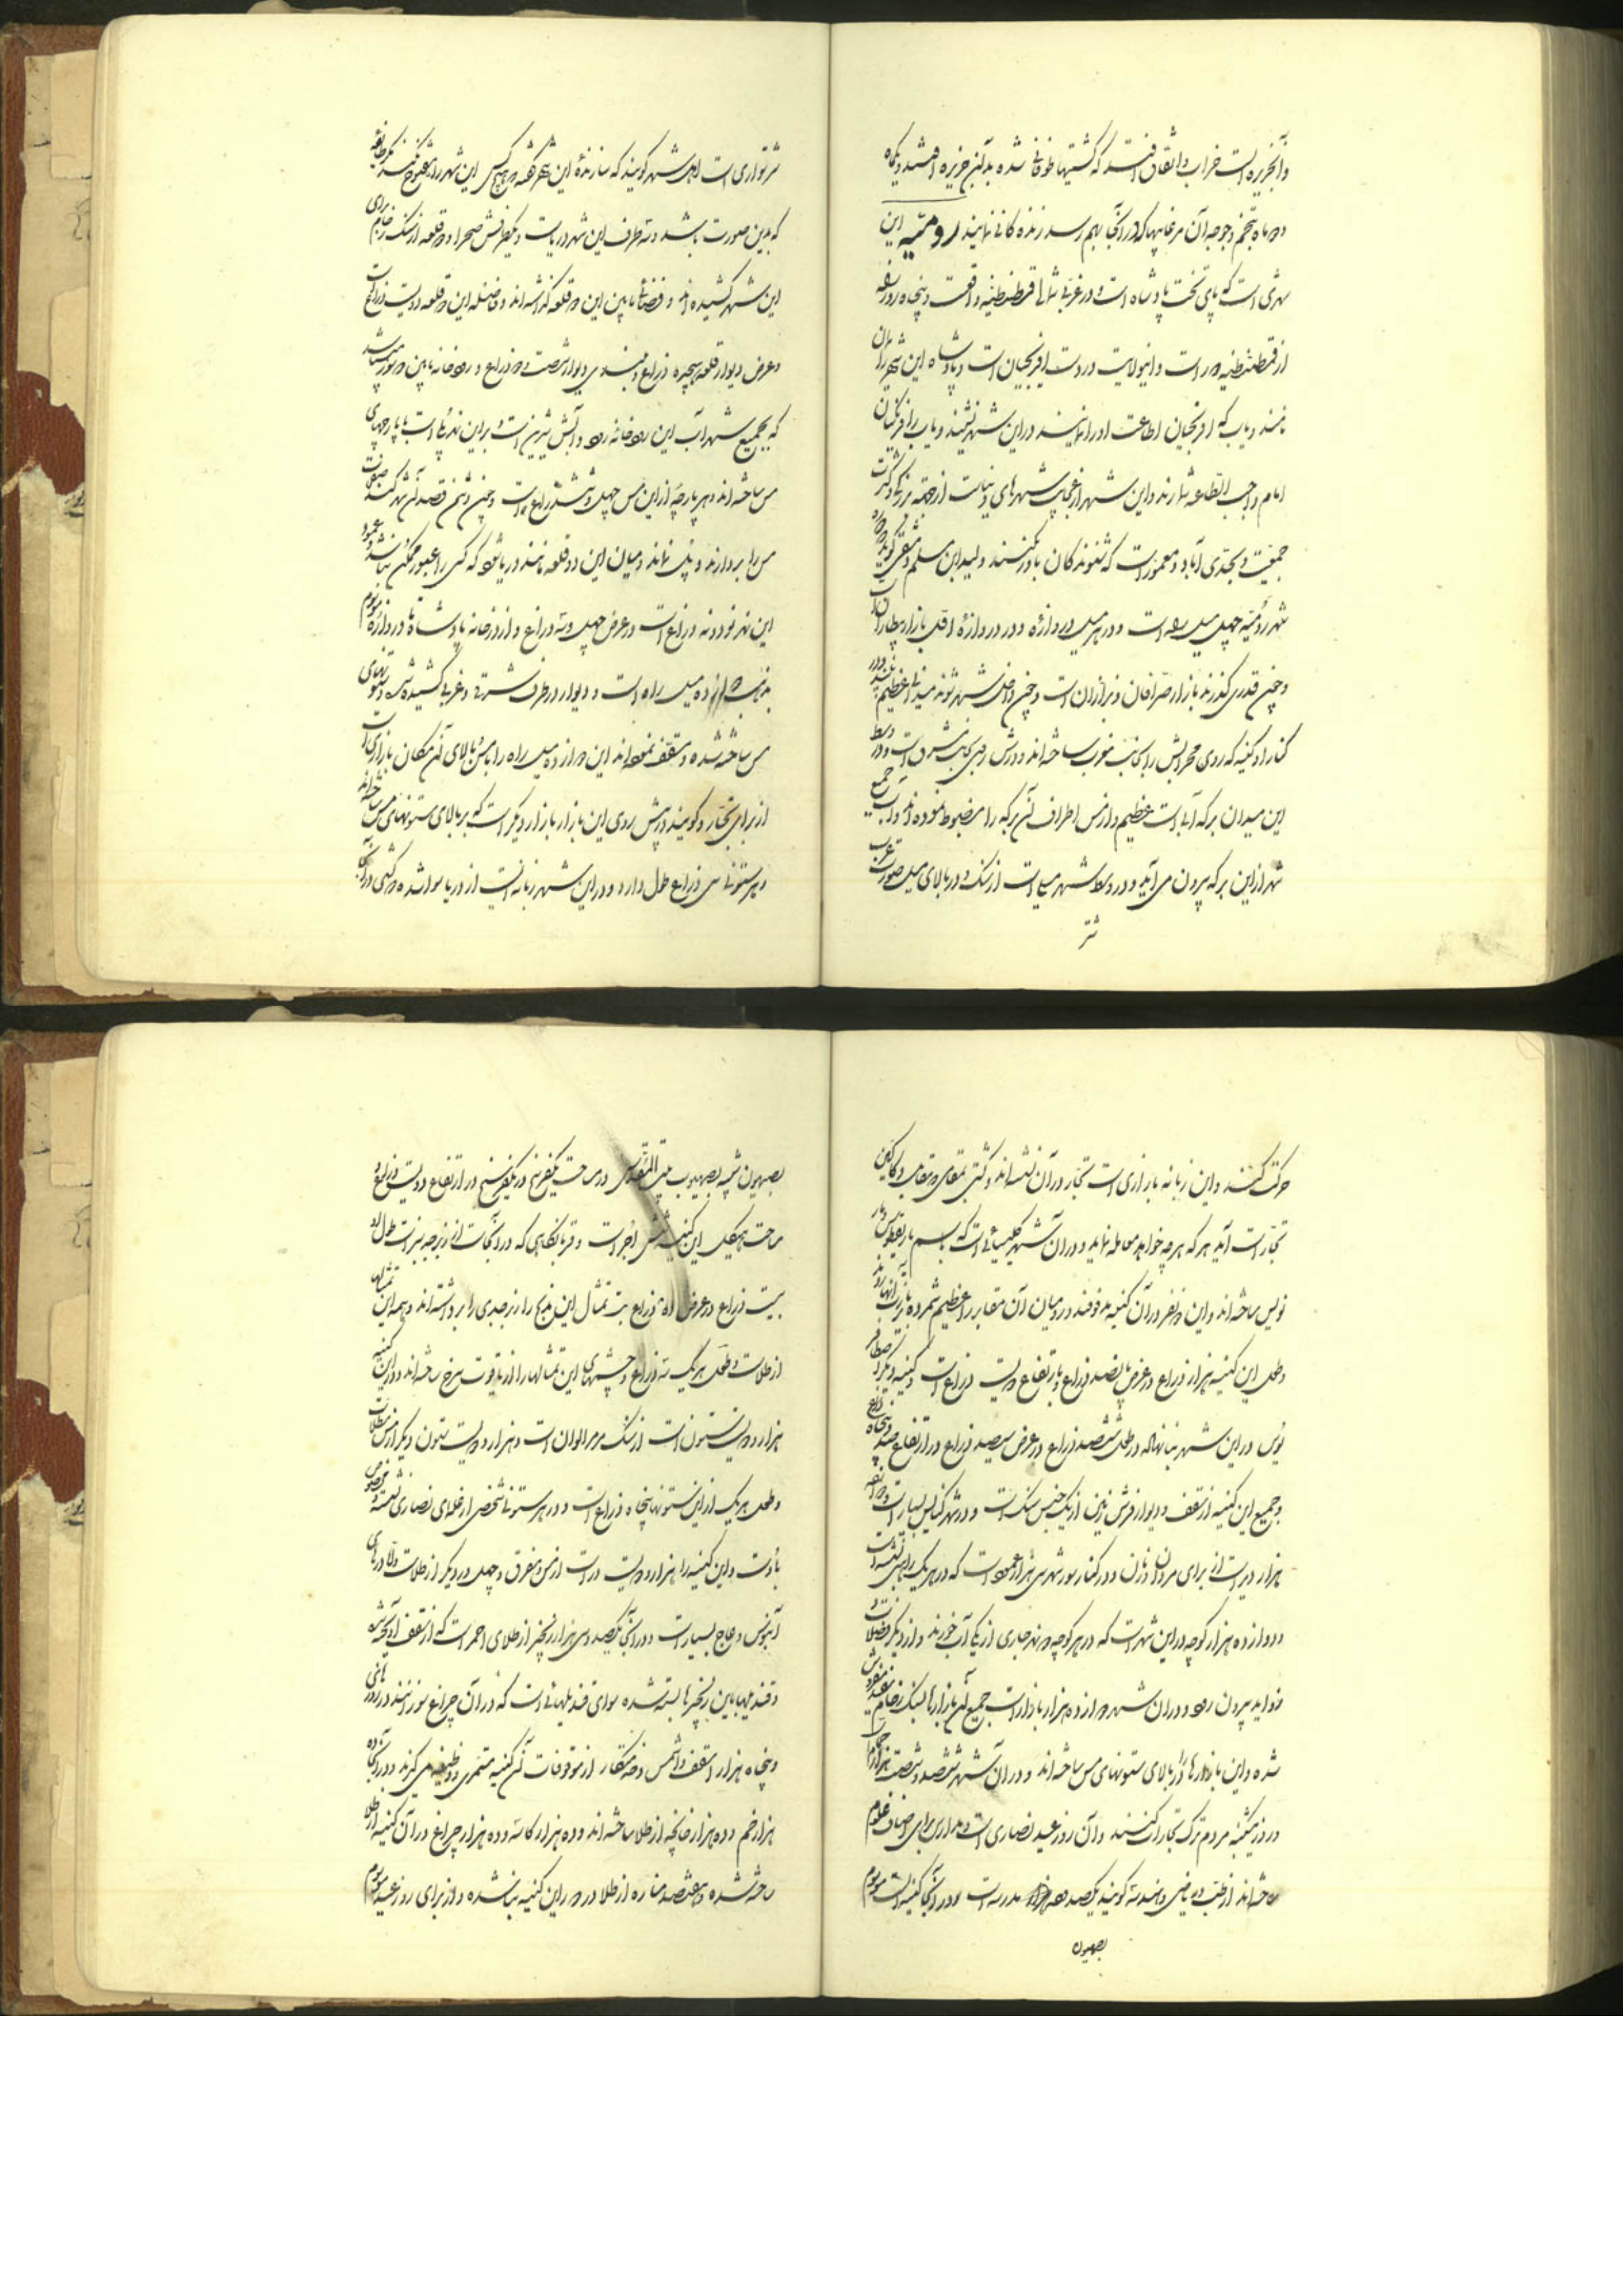 و آنجزیره ایست خراب و اتفاق افتد که کشتیها طوفانی شده بدآنجزیره افتند و یکماه
دو ماه بتخم و جوجه آن مرغابیها که در آنجا بهم رسد زنده کانی نمایند رومیه این
شهری است که پای تخت پادشاه است و در غربی شمالی قسطنطنیه واقعست و پنجاه روز راه
از قسطنطنیه دور است و اینولایت در دست افرنجیان است و پادشاه این شهر را
نامند و باب که افرنجیان اطاعت او را نمایند در این شهر نشیند و باب را فرنکیان
امام واجب الطاعه شمارند و این شهر از عجایب شهرهای دنیاست از جهة بزرکی و کثرت
جمعیت و بحدی آباد و معمور است که شنوندکان باور نکنند ولید ابن مسلم دمشقی کوید
شهر رومیه چهل میل راه است و در هر میل دروازه و در دروازه اول بازار بیطاران
و چون قدری کذرند بازار صرافان و بزازان است و چون داخل شهر شوند میدانی عظیم
کنار او کنیسه که روی محرابش را بجانب مغرب ساخته اند و درش بجانب مشرق است و در وسط
این میدان برکه آبی است عظیم و از مس اطراف آن برکه را مضبوط نموده اند و آب جمیع
شهر از این برکه بیرون می آید و در وسط شهر میلی است از سنک و در بالای میل صورت
شتر
شتر سواری است اهل شهر کویند که سازنده این شهر کفته هیچکس این شهر را مفتوح نکند مکر طائفه
که بدین صورت باشند و سه طرف این شهر دریاست و یکطرفش صحرا و دو قلعه از سنک رخام برای
این شهر کشیده اند و فضائی مابین این دو قلعه کذاشته اند و فاصله این دو قلعه دویست ذراع است
و عرض دیوار قلعه هیجده ذراع و بلندی دیوار شصت و دو ذراع و رودخانه مابین دو سور میباشد
که بجمیع شهر آب این رودخانه رود و آبش شیرین است و بر این نهر پلی است با پارچهای
مس ساخته اند و هر پارچه از این مس چهل و شش ذراع است و چون دشمن قصد آن شهر کند
مس را بردارند و پل نماند و میان این دو قلعه مانند دریا شود که کسی را عبور ممکن نباشد
این نهر نود و نه ذراع است و عرض چهل و سه ذراع و از در خانه پادشاه تا دروازه موسوم
دوازده میل راه است و دیوار در طرف شرقی و غربی کشیده شده و ستونهای
مس ساخته شده و مسقف نموده اند این دوازده میل راه را با مس و بالای آن مکان بازاری است
از برای تجار و کویند در پیش روی این بازار بازار دیکر است که بر بالای ستونهای مس ساخته اند
و هر ستونی سی ذراع طول دارد و در این شهر زبانه ایست از دریا سوا شده و کشتی در آنجا
حرکت کنند و این زبانه بازاری است تجار در آن نشسته اند و کشتی بمقام دکاکین
تجار است آید هر که هر چه خواهد معامله نماید و در آن شهر کلیسیائی است که باسم مار پطرس و مار
پولس ساخته اند و این دو نفر در آن کنیسه مدفونند و در میان آن مقابر را عظیم شمرده بزیارت آنها روند
و طول این کنیسه هزار ذراع و عرض پانصد ذراع و بارتفاع دویست ذراع است و کنیسه دیکر
در این شهر بنا نهاده در طول ششصد ذراع و عرض سیصد ذراع و در ارتفاع صد و پنجاه ذراع
و جمیع این کنیسه از سقف و دیوار و فرش زمین از یک جنس سنک است و در شهر کنایس بسیار است
هزار دیر است از برای مردان و زنان و در کنار سور شهر سی هزار عمود است که در هر یک راهبی نشسته است
و دوازده هزار کوچه در این شهر است که در هر کوچه دو نهر جاری از یکی آب خورند و از دیکر فضلات و
زواید بیرون رود و در آن شهر دوازده هزار بازار است جمیع آن بازارها بسنک رخام سفید مفروش
شده و این بازارها را بالای ستونهای مس ساخته اند و در آن شهر ششصد و شصت هزار حمام
در روز یکشنبه مردم ترک تجارات کنند و آن روز عید نصاری است و مدارس برای اصناف علوم
ساخته اند از طب و ریاضی و هندسه کویند یکصد مدرسه است و در آنجا کنیسه است موسوم
بصهیون
بصهیون شبیه بصهیون بیت المقدس در مساحت یکفرسخ در یکفرسخ در ارتفاع دویست ذراع و
مساحت هیکل این کنیسه شش اجر است و قربانکاهی که در آنجاست از زبرجد سبز است طول او
بیست ذراع و عرض ده ذراع بیست تمثال این مذبح را از زبرجدی را برداشته اند و همه این تمثالها
از طلاست و طول هر یک سه ذراع و چشمهای این تمثالها را از یاقوت سرخ ساخته اند و در این کنیسه
هزار و دویست ستون است از سنک مرمر الوان است و هزار و دویست ستون دیکر از مس مطلاست
و طول هر یک از این ستونها پنجاه ذراع است و در هر ستونی شخصی از علمای نصاری نشسته و مخصوص
باوست و این کنیسه را هزار و دویست در است از مس مفرق و چهل در دیکر از طلاست و الا درهای
آبنوس و عاج بسیار است و در آنجا یکصد و سی هزار زنجیر از طلای احمر است که از سقف آویخته شده
و قندیلها باین زنجیرها بسته شده سوای قندیلهائی است که در آن چراغ سوزانند در روزهای
و پنجاه هزار اسقف و شماس و خدمتکار از موقوفات آن کنیسه مستمری و وظیفه می کیرند و در آنجا ده
هزار خم و ده هزار خوانچه از طلا ساخته اند و ده هزار کاسه و ده هزار چراغ در آن کنیسه از طلا
ساخته شده و هفتصد مناره از طلا در دور این کنیسه بنا شده و از برای روز عید موسوم